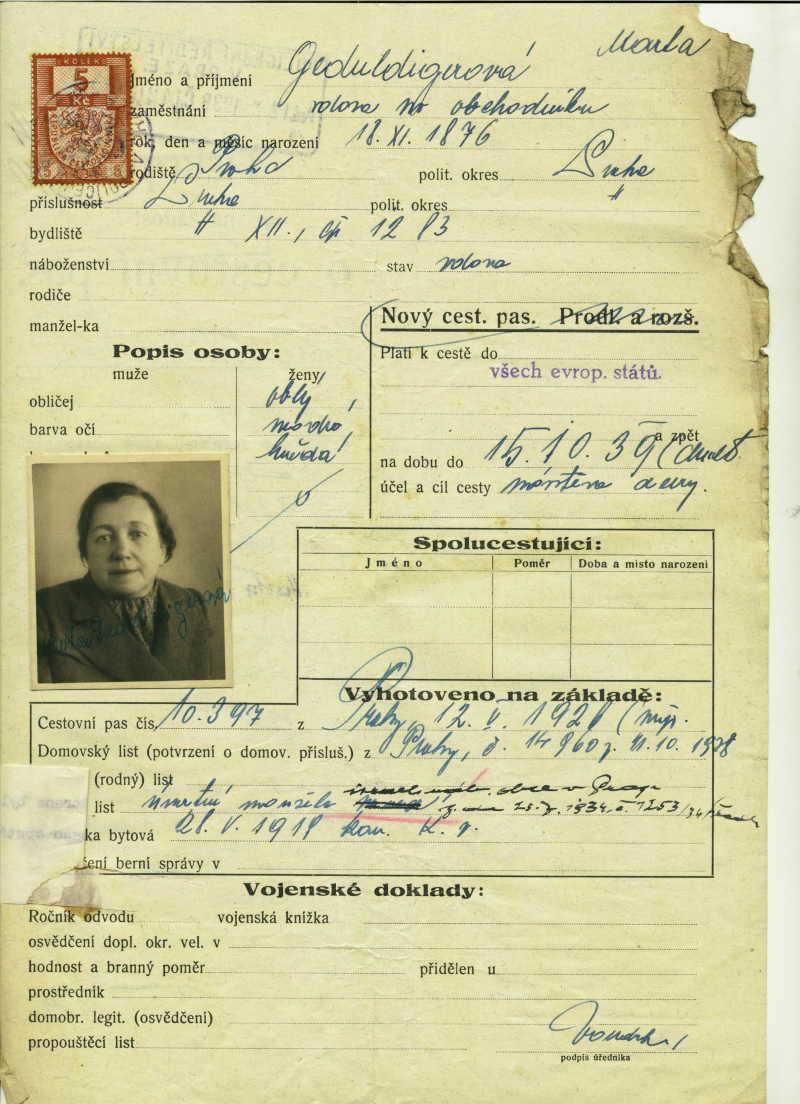 KOLEK
5
Kč
Jméno a příjmení Geduldigerová Marta
zaměstnání vdova po obchodníku
rok, den a měsíc narození 18. XI. 1876
rodiště Praha polit. okres Praha
příslušnost Praha polit. okres "
bydliště " XII., čp 1283
náboženství stav vdova
rodiče
manžel-ka
Nový cest. pas. Prodl. a rozš.
Popis osoby:
muže ženy
Platí k cestě do
všech evrop. států.
obličej oblý
barva očí modré
hnědá
a zpět
na dobu do 15. 10. 39
účel a cíl cesty návštěva dcery.
Spolucestující:
Jméno Poměr Doba a místo narození
Vyhotoveno na základě:
Cestovní pas čís. 10.397 z Prahy, 12. V. 192
Domovský list (potvrzení o domov. přísluš.) z Prahy, č. 14960 z 11. 10. 1928
(rodný) list
list úmrtní manžela obce v Praze
ka bytová 28. V. 1919
ení berní správy v
Vojenské doklady:
Ročník odvodu vojenská knížka
osvědčení dopl. okr. vel. v
hodnost a branný poměr přidělen u
prostředník
domobr. legit. (osvědčení)
propouštěcí list
podpis úředníka